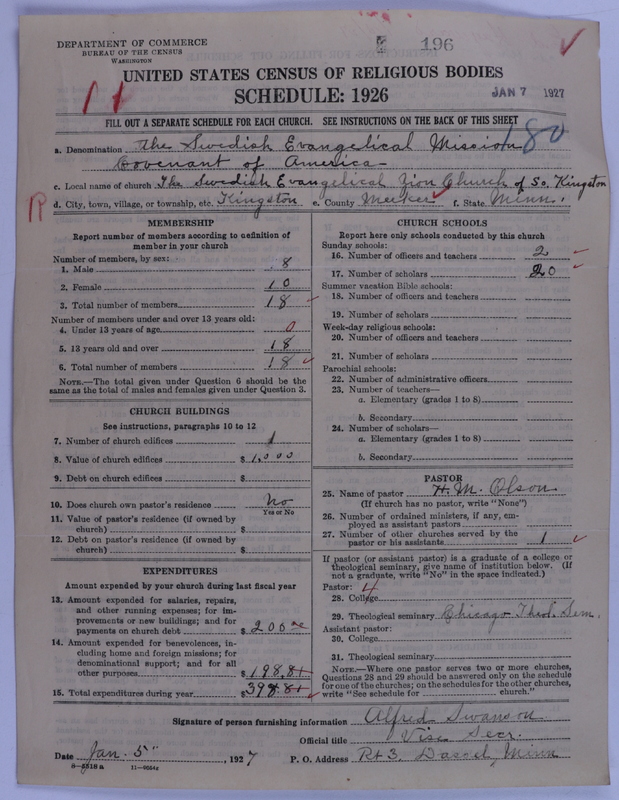 196
DEPARTMENT OF COMMERCE
BUREAU OF THE CENSUS
WASHINGTON
UNITED STATES CENSUS OF RELIGIOUS BODIES
SCHEDULE: 1926
JAN 7 1927
FILL OUT A SEPARATE SCHEDULE FOR EACH CHURCH. SEE INSTRUCTIONS ON THE BACK OF THIS SHEET
180
a. Denomination The Swedish Evangelical Mission
Covenant of America
c. Local name of church The Swedish Evangelical Zion Church of So. Kingston
d. City, town, village, or township, etc. Kingston e. County Meeker f. State Minn.
MEMBERSHIP
Report number of members according to definition of
member in your church
Number of members, by sex:
1. Male 8
2. Female 10
3. Total number of members 18
Number of members under and over 13 years old:
4. Under 13 years of age 0
5. 13 years old and over 18
6. Total number of members 18
NOTE.—The total given under Question 6 should be the
same as the total of males and females given under Question 3.
CHURCH BUILDINGS
See instructions, paragraphs 10 to 12
7. Number of church edifices 1
8. Value of church edifices $1,000
9. Debt on church edifices $
10. Does church own pastor's residence No
Yes or No
11. Value of pastor's residence (if owned by
church) $
12. Debt on pastor's residence (if owned by
church) $
EXPENDITURES
Amount expended by your church during last fiscal year
13. Amount expended for salaries, repairs,
and other running expenses; for im-
provements or new buildings; and for
payments on church debt $200
14. Amount expended for benevolences, in-
cluding home and foreign missions; for
denominational support; and for all
other purposes $198.81
15. Total expenditures during year $398.81
CHURCH SCHOOLS
Report here only schools conducted by this church
Sunday schools:
16. Number of officers and teachers 2
17. Number of scholars 20
Summer vacation Bible schools:
18. Number of officers and teachers
19. Number of scholars
Week-day religious schools:
20. Number of officers and teachers
21. Number of scholars
Parochial schools:
22. Number of administrative officers
23. Number of teachers—
a. Elementary (grades 1 to 8)
b. Secondary
24. Number of scholars—
a. Elementary (grades 1 to 8)
b. Secondary
PASTOR
25. Name of pastor H. M. Olson
(If church has no pastor, write "None")
26. Number of ordained ministers, if any, em-
ployed as assistant pastors
27. Number of other churches served by the
pastor or his assistants 1
If pastor (or assistant pastor) is a graduate of a college or
theological seminary, give name of institution below. (If
not a graduate, write "No" in the space indicated.)
Pastor:
28. College
29. Theological seminary Chicago Theol. Sem.
Assistant pastor:
30. College
31. Theological seminary
NOTE.—Where one pastor serves two or more churches,
Questions 28 and 29 should be answered only on the schedule
for one of the churches; on the schedules for the other churches,
write "See schedule for church."
Signature of person furnishing information Alfred Swanson
Official title Vise Secr.
Date Jan. 5", 1927 P. O. Address Rt 3. Dassel, Minn
8-5518 a 11-9054c